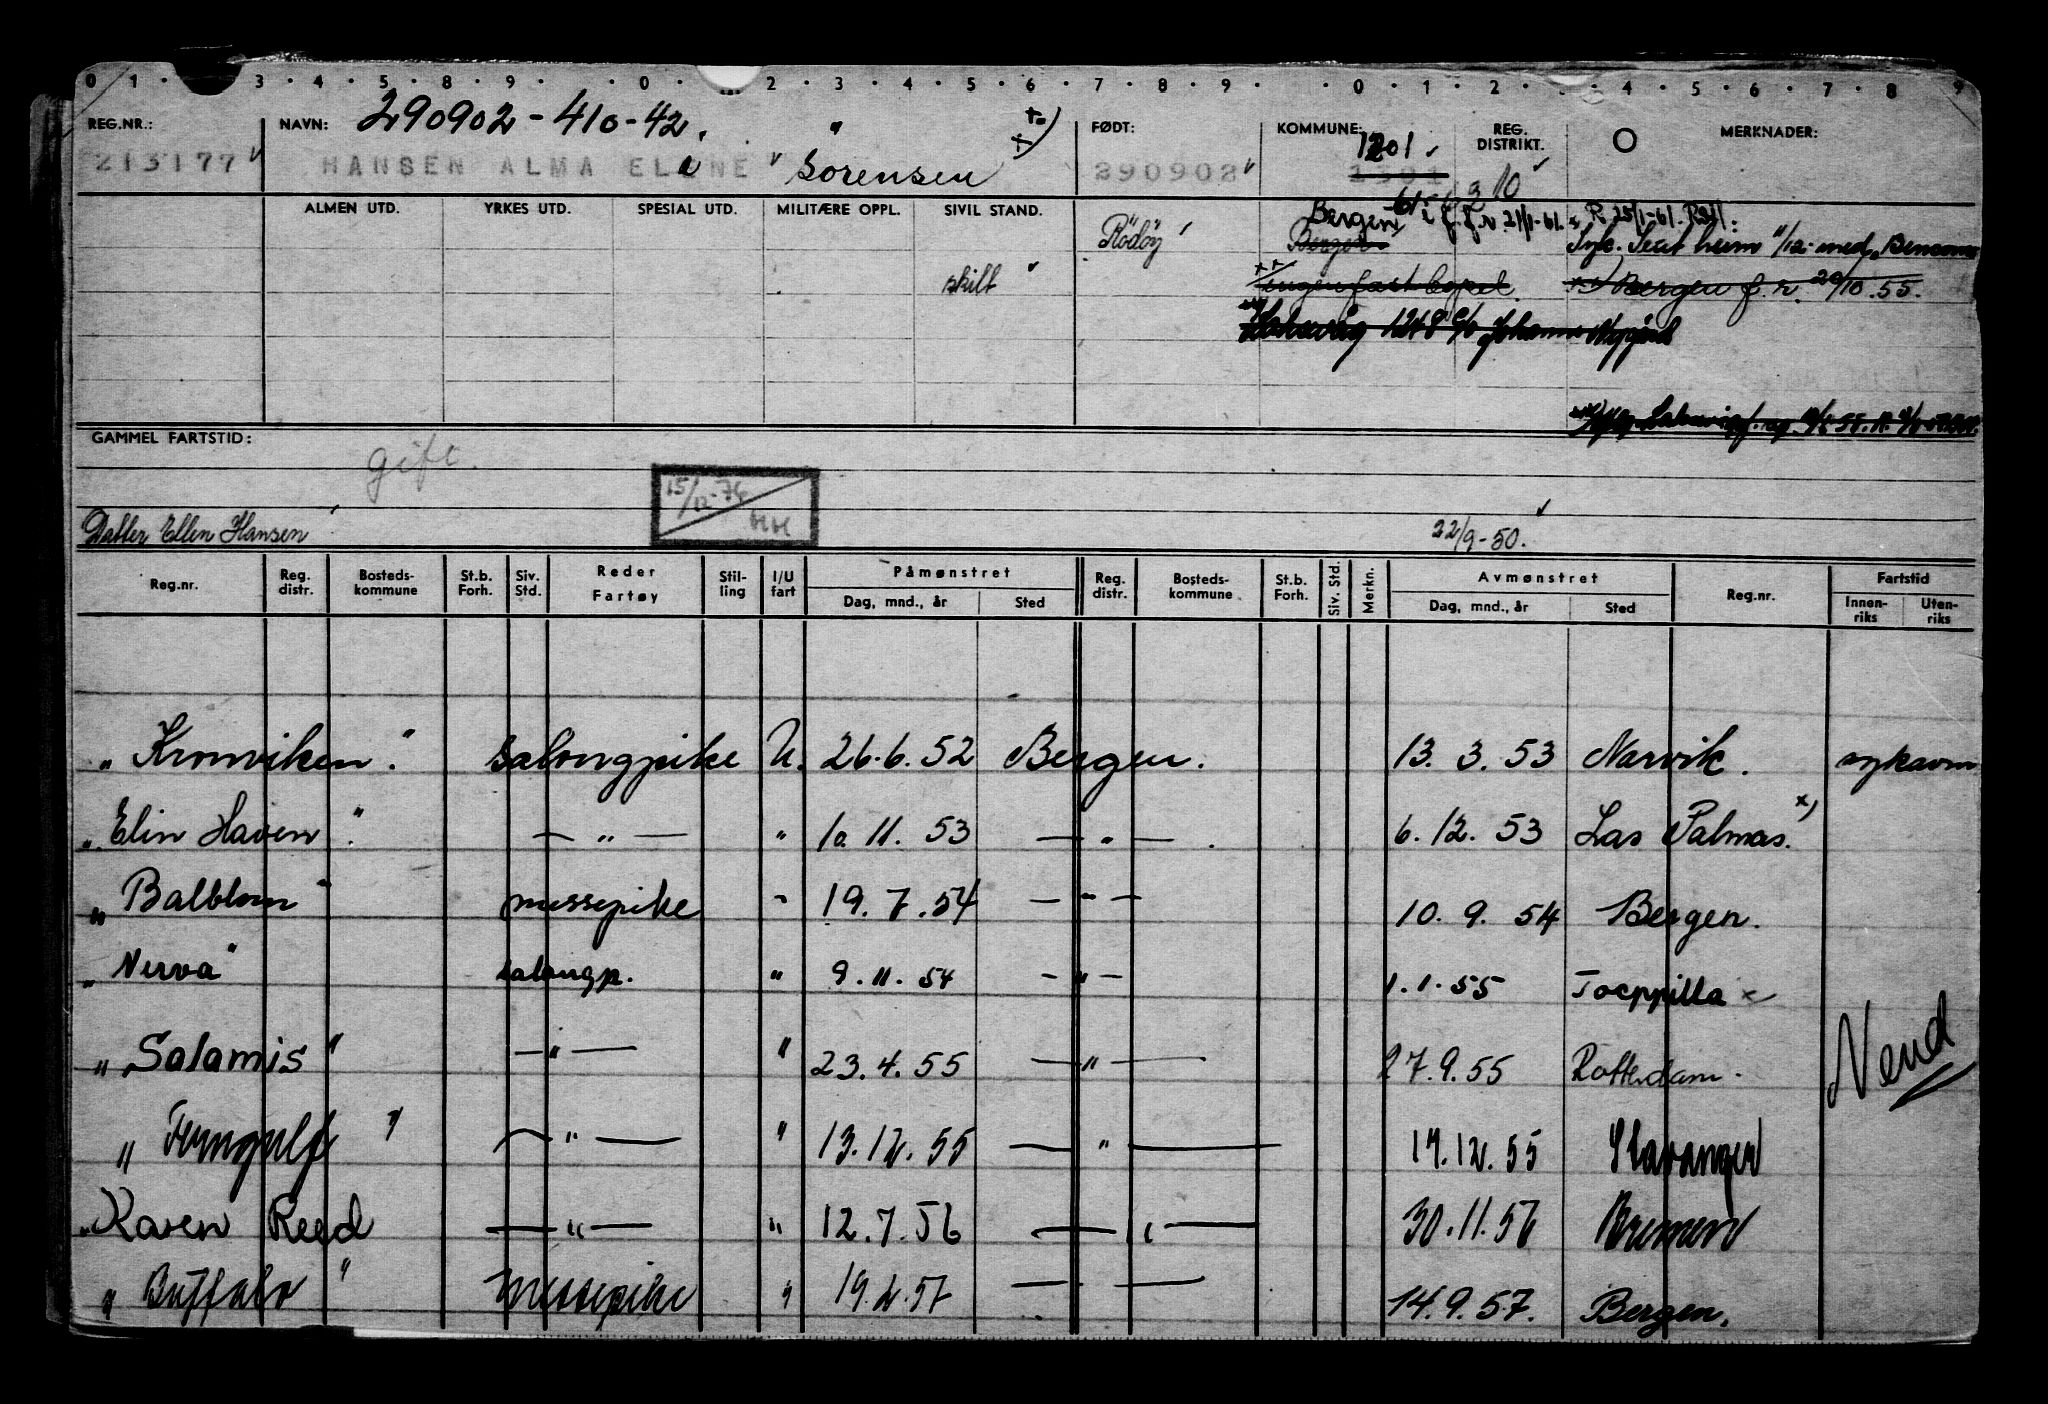 0 1 · 3 · 4 · 5 · 8 · 9 · · 0 · 1 · 2 · 3 · 4 · 5 · 6 · 7 · 8 · 9 · · 0 · 1 · 2 · 4 · 5 · 6 · 7 · 8 9
REG.NR.: NAVN: 290902-410-42. FØDT: KOMMUNE: 1201 REG. DISTRIKT. MERKNADER:
213177 HANSEN ALMA ELINE Sorensen x+) 290902 1301 10
ALMEN UTD. YRKES UTD. SPESIAL UTD. MILITÆRE OPPL. SIVIL STAND.
Bergen f.r. 21/1-61. R. 25/1-61.
Rödöy Bergen heim 11/12 med
skilt ingen fast bopel. Bergen f.r. 20/10.55.
1248 c/o
GAMMEL FARTSTID:
gift.
15/12-76 HH
Datter Ellen Hansen 22/9-50.
Reg.nr. Reg. distr. Bosteds-kommune St.b. Forh. Siv. Std. Reder Fartøy Stil-ling I/U fart Påmønstret Dag, mnd., år Sted Reg. distr. Bosteds-kommune St.b. Forh. Siv. Std. Merkn. Avmønstret Dag, mnd., år Sted Reg.nr. Fartstid Innen-riks Uten-riks
"Kronviken". salongpike U. 26.6.52 Bergen. 13.3.53 Narvik. sykavm
"Elin Haven". — " — " 10.11.53 — " — . 6.12.53 Las Palmas. x)
"Balblom" messepike - 19.7.54 — " — 10.9.54 Bergen.
"Nerva" salongp. " 9.11.54 — " — 1.1.55 Tocopilla x
"Salamis" — " — " 23.4.55 — " — 27.9.55 Rotterdam.
Vend
"Ferngulf" — " — " 13.12.55 — " — 17.12.55 Stavanger
"Karen Reed — " — " 12.7.56 — " — 30.11.56 Bremen
"Buffalo" Messepike " 19.2.57 — — 14.9.57. Bergen.